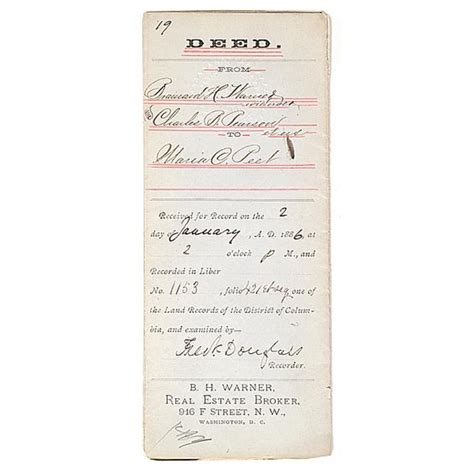 19
DEED.
FROM
Brainard H. Warner
Charles B. Pearson
et us
TO
Maria C. Peet
Received for Record on the 2
day of January, A. D. 1886, at
2 o'clock P M., and
Recorded in Liber
No. 1153, folio 421 et seq one of
the Land Records of the District of Colum-
bia, and examined by—
Fredk Douglass
Recorder.
B. H. WARNER,
REAL ESTATE BROKER,
916 F STREET, N. W.,
WASHINGTON, D. C.